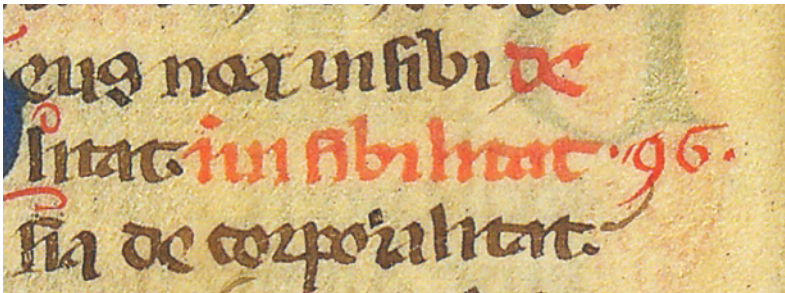 eus na iuisibi de
litat. iuisibilitat .96.
sia de corporalitat.